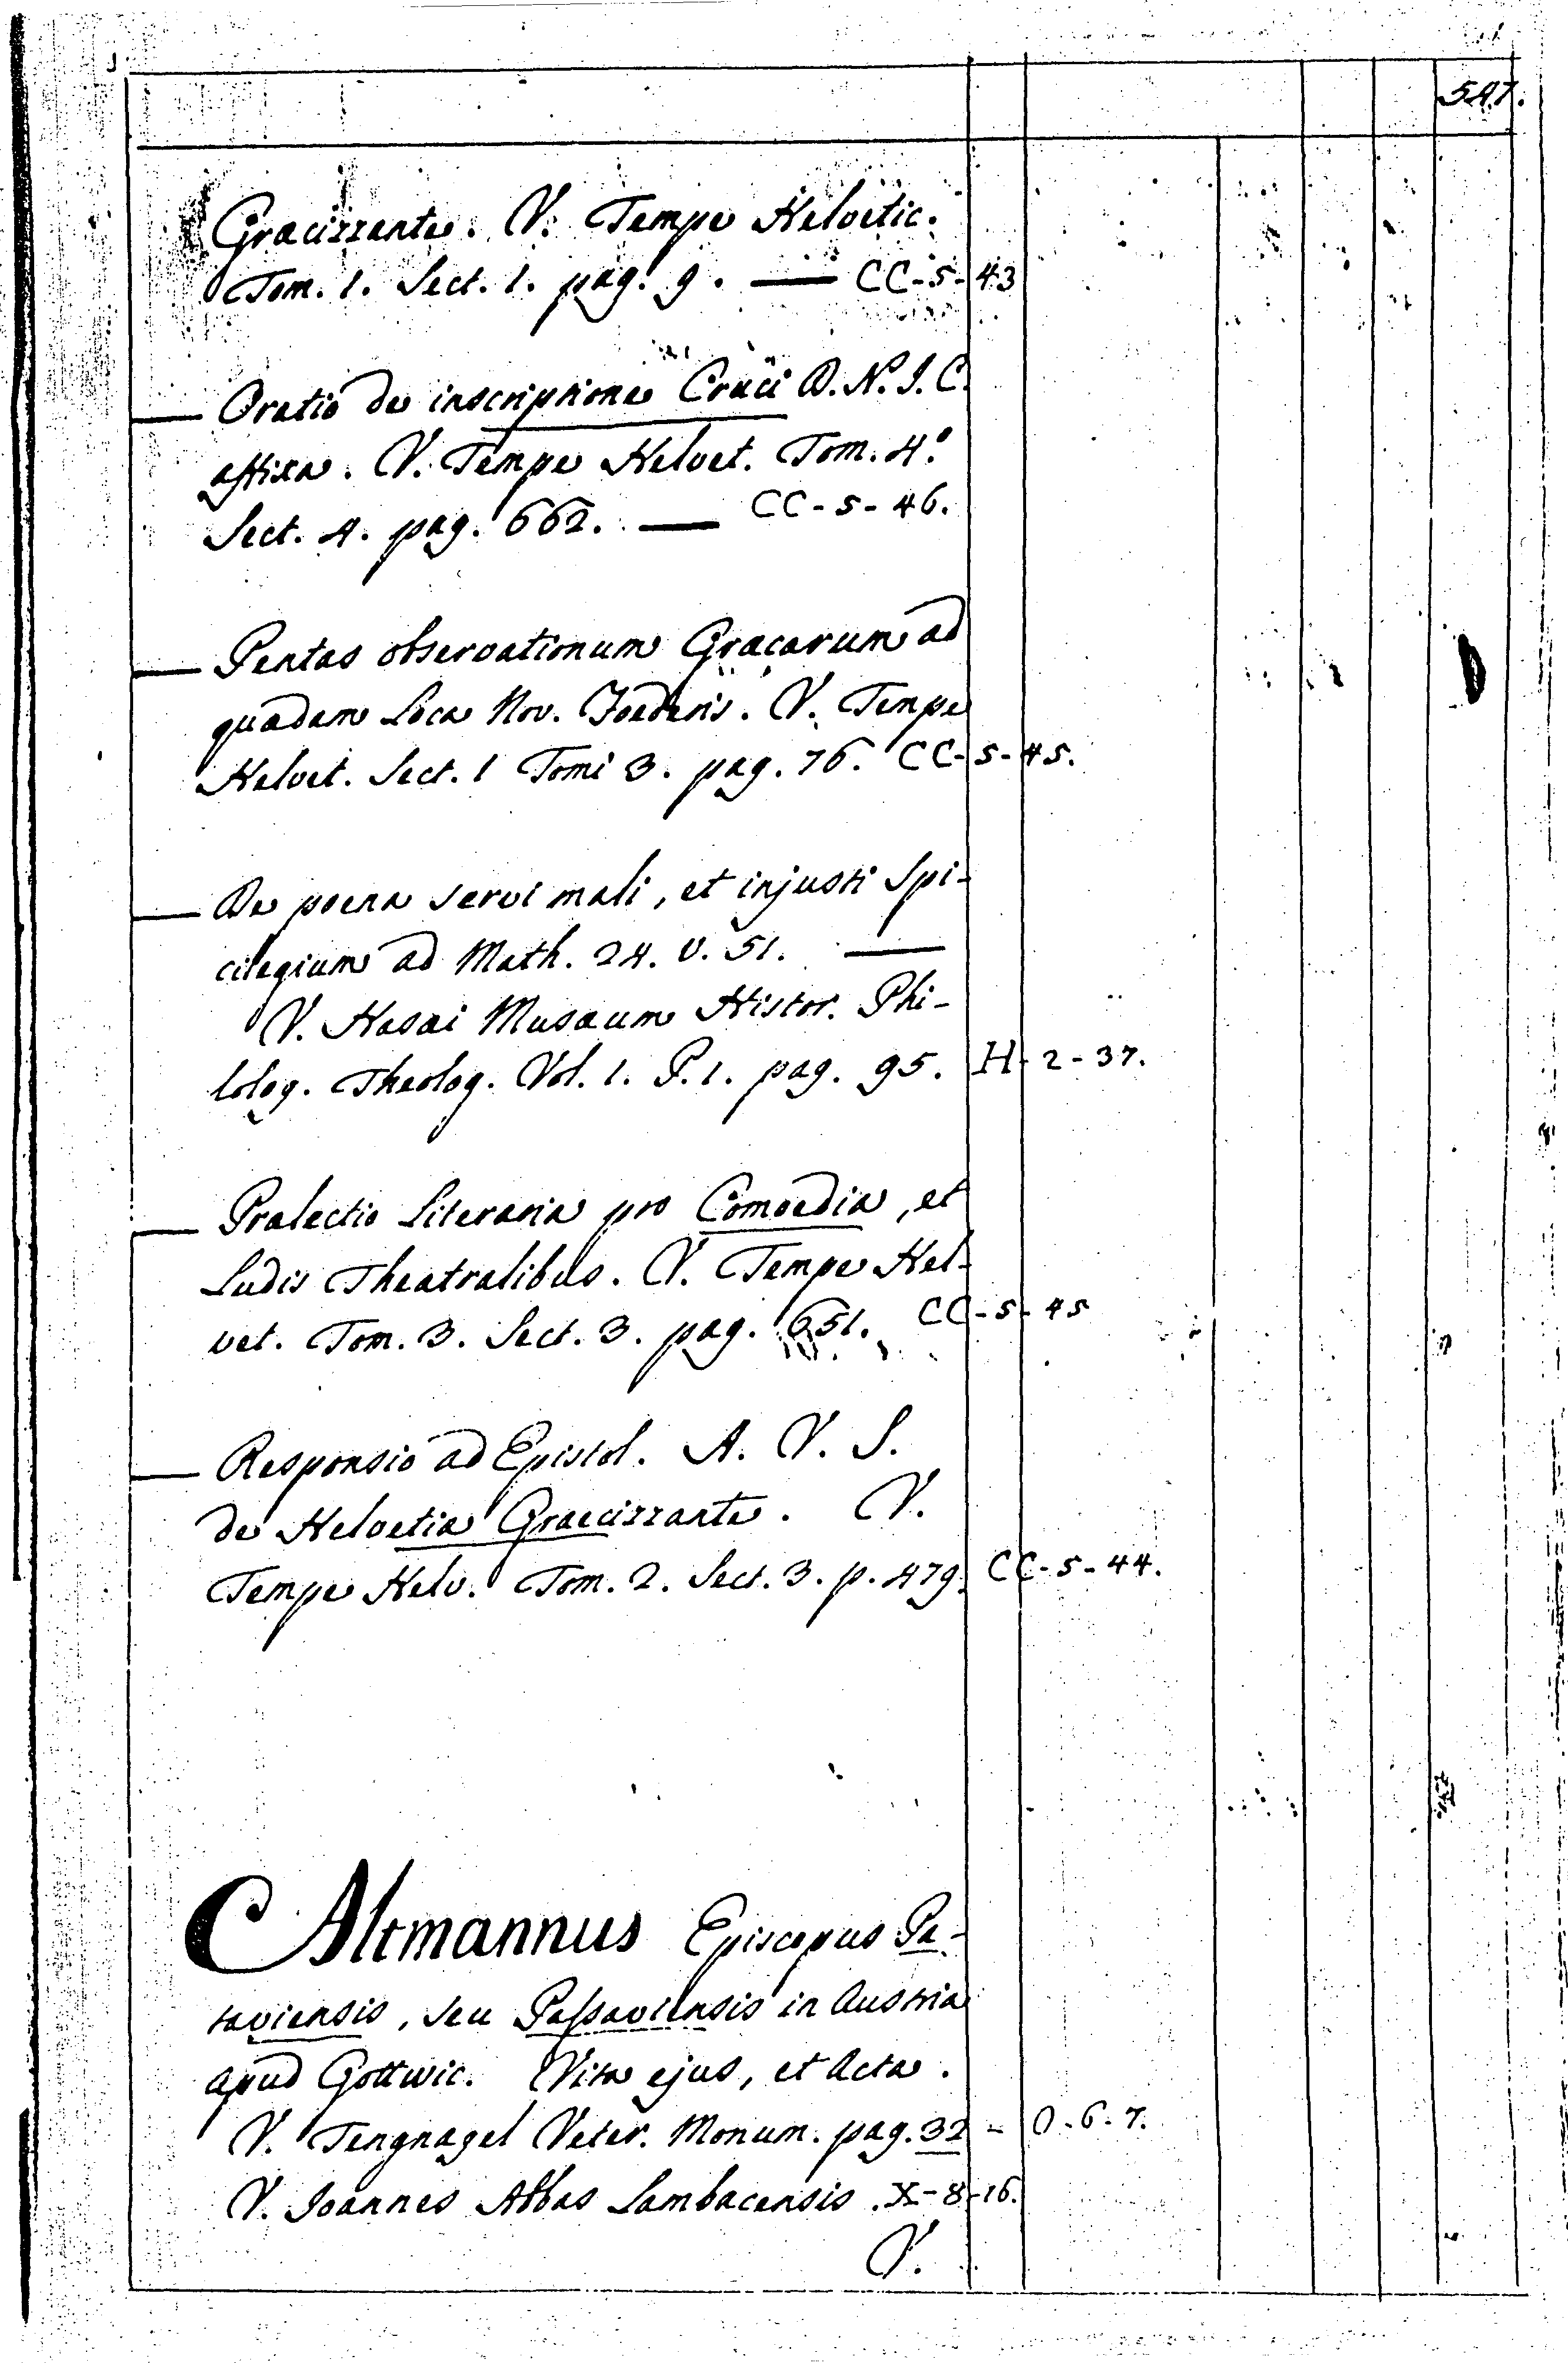 547.
Graecizzante. V. Tempe Helvetic.
Tom. 1. Sect. 1. pag. 9. — CC-5-43
— Oratio de inscriptione Cruci D. N. J. C.
affixa. V. Tempe Helvet. Tom. 4.º
Sect. 4. pag. 662. — CC-5-46.
— Pentas observationum Graecarum ad
quaedam Loca Nov. Foederis. V. Tempe
Helvet. Sect. 1 Tomi 3. pag. 76. CC-5-45.
— De poena servi mali, et injusti Spi-
cilegium ad Math. 24. v. 51. —
V. Hasaei Musaeum Histor. Phi-
lolog. Theolog. Vol. 1. P. 1. pag. 95. H-2-37.
— Praelectio Literaria pro Comoedia, et
Ludis Theatralibus. V. Tempe Hel-
vet. Tom. 3. Sect. 3. pag. 651. CC-5-45
— Responsio ad Epistol. A. V. S.
de Helvetia Graecizzante. V.
Tempe Helv. Tom. 2. Sect. 3. p. 479. CC-5-44.
Altmannus Episcopus Pa-
taviensis, seu Passaviensis in Austria
apud Gottwic. Vita ejus, et Acta.
V. Tengnagel Veter. Monum. pag. 32 - O-6-7.
V. Joannes Abbas Lambacensis. X-8-16.
V.